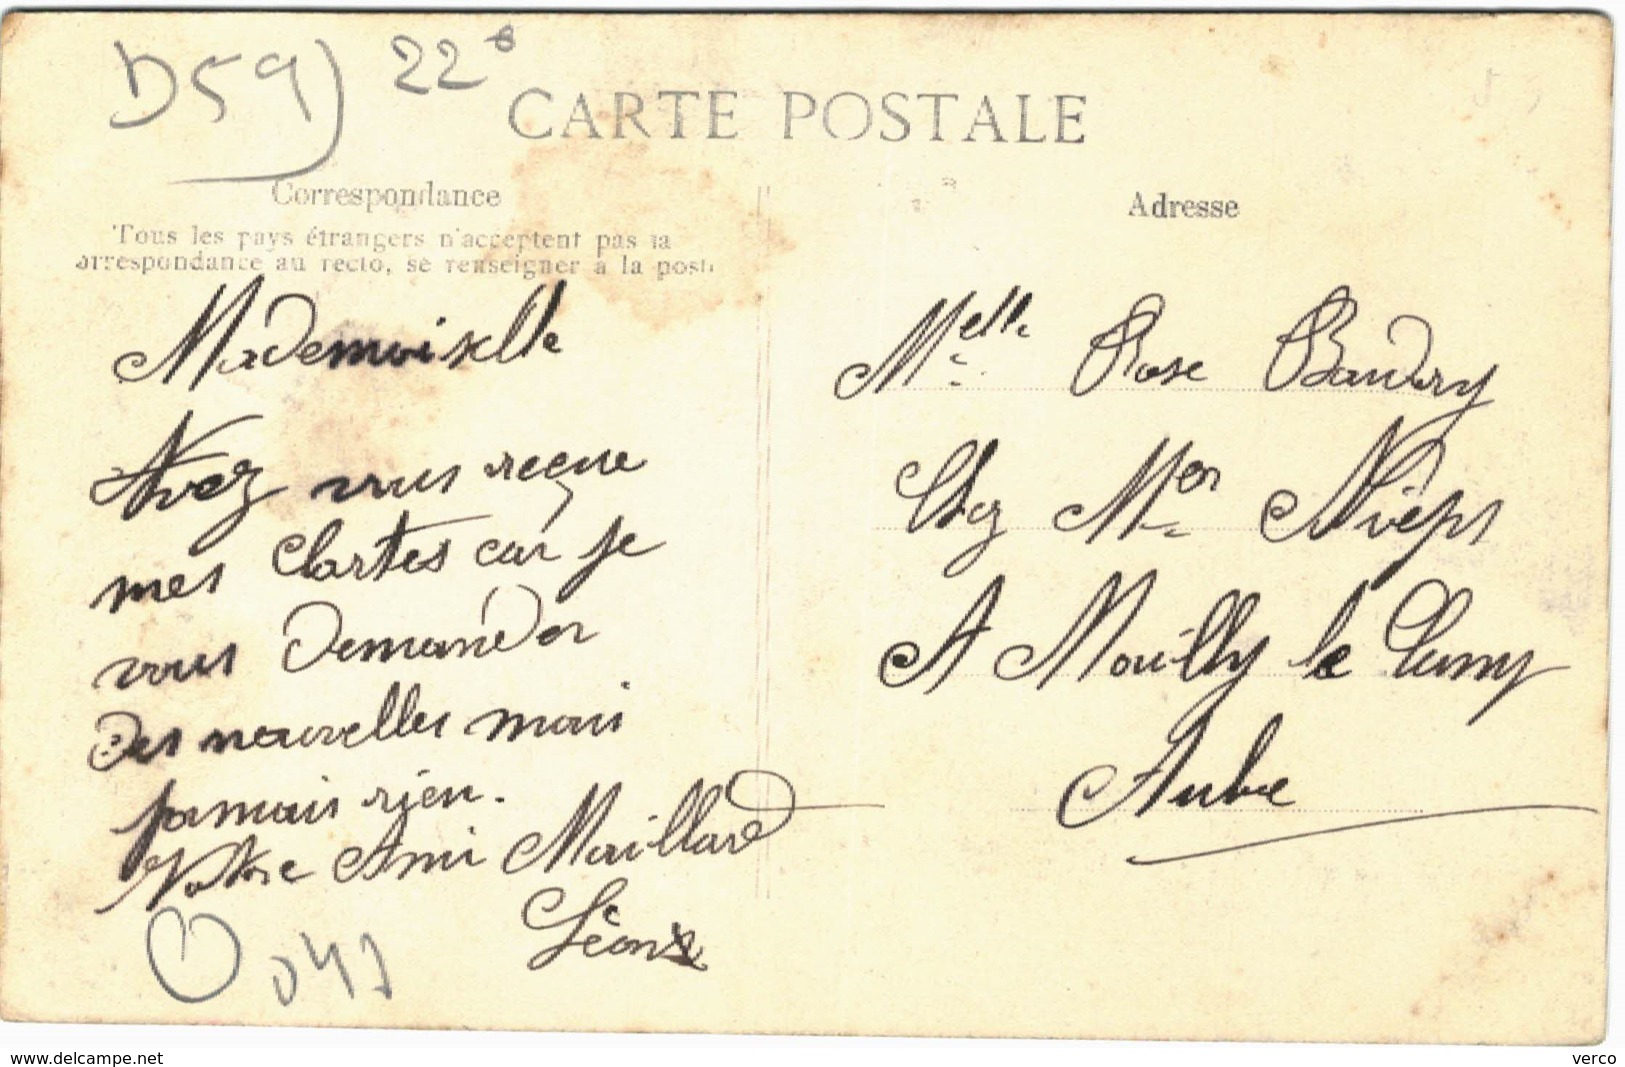 D59) 22€
CARTE POSTALE
Correspondance
Tous les pays étrangers n'acceptent pas la
orrespondance au recto, se renseigner à la post
Mademoiselle
Avez vous reçue
mes Cartes car je
vous Demander
Des nouvelles mais
jamais rien.
Votre Ami Maillard
Léon
Adresse
Melle Rose Baudry
Chez Mer Nièps
A Mouilly le
Aube
www.delcampe.net
verco